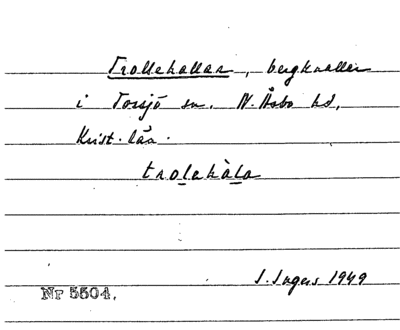 Trollehallar, bergknallar
i Torsjö sn. N. Åsbo hd,
Krist. län.
trolehàla
I. Ingers 1949
Nr 5504.